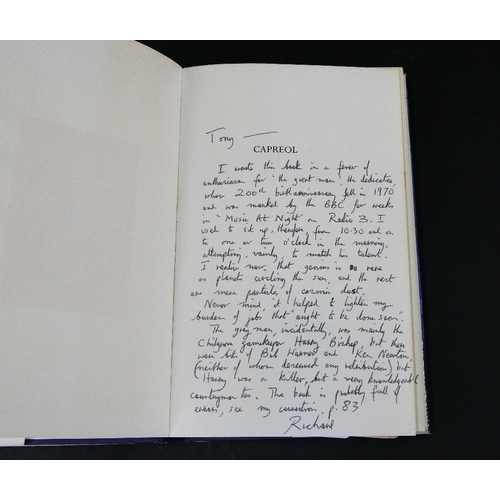 Tony —
CAPREOL
I wrote this book in a fever of
enthusiasm for 'the great man'. He dedicates,
whose 200th birth anniversary fell in 1970
and was marked by the BBC for weeks
in 'Music At Night' on Radio 3. I
used to sit up, therefore, from 10.30 and on
to one or two o'clock in the morning,
attempting, vainly, to match his talent.
I realise now that genius is as rare
as planets circling the sun, and the rest
are mere particles of cosmic dust.
Never mind, it helped to lighten my
burden of jobs that "ought to be done soon".
The grey man, incidentally, was mainly the
Chilgrove gamekeeper Harry Birkup, but there
were bits of Bib Warner and Ken Newton,
(neither of whom deserved any retribution) but
Harry was a killer, but a very knowledgeable
countryman too. The book is probably full of
errors, see my correction. p. 83
Richard